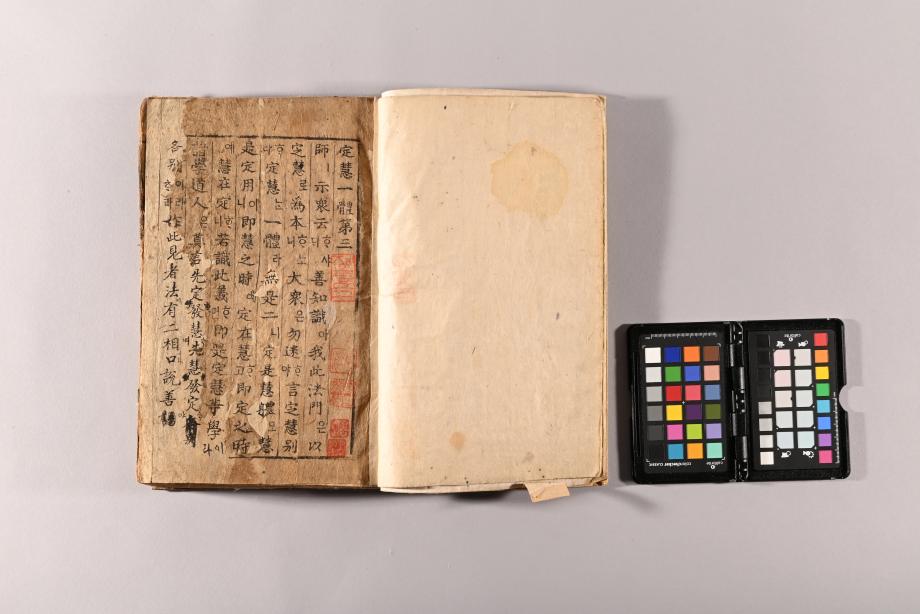 定慧一體第三
師ㅣ示衆云ᄒᆞ샤ᄃᆡ善知識아我此法門은以
定慧로爲本ᄒᆞ노니大衆은勿迷ᄒᆞ야言定慧別ᄒᆞ라
定慧ᄂᆞᆫ一體라無是二시니定是慧體오慧
是定用이니即慧之時예定在慧고即定之時
예慧在定ᄒᆞ니若識此義ᄒᆞ면即是定慧等學이라
學道人은莫言先定發慧先慧發定
各別이라ᄒᆞ라作此見者法有二相口說善
colorchecker CLASSIC
calibrite
calibrite